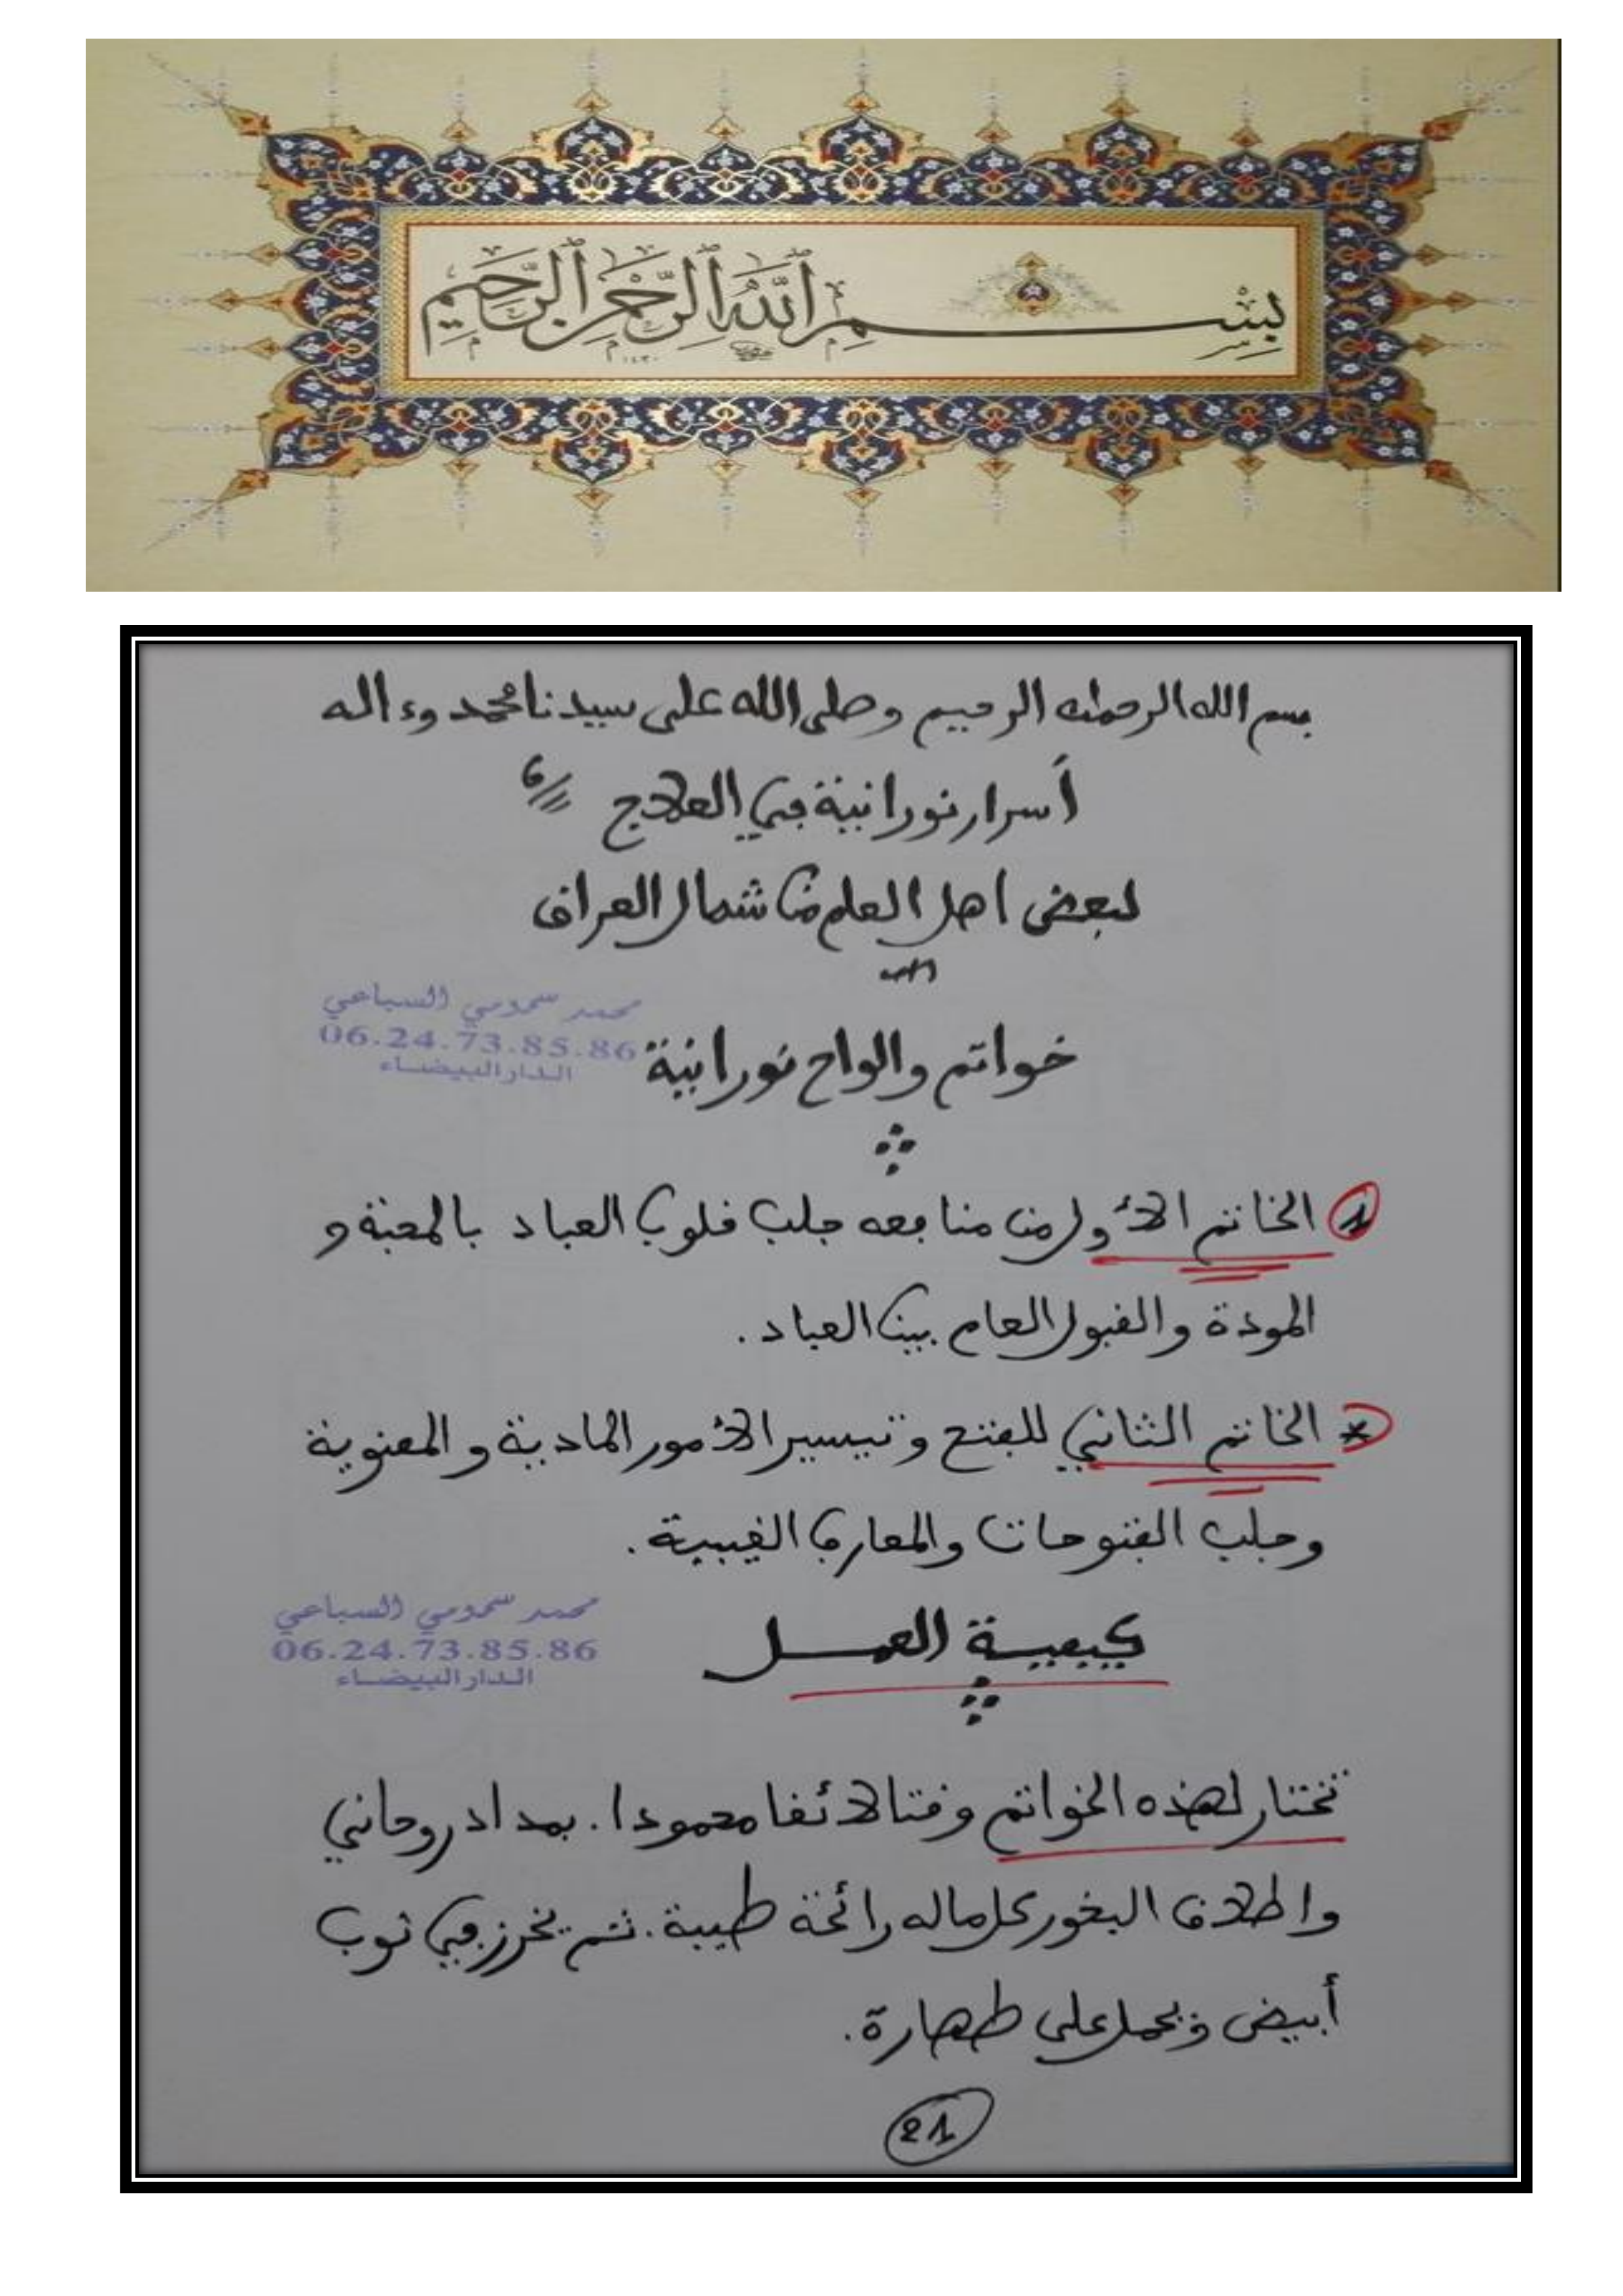 بِسْمِ ٱللَّهِ ٱلرَّحْمَٰنِ ٱلرَّحِيمِ
١٤٣٠
بسم الله الرحمان الرحيم وصلى الله على سيدنا محمد وءاله
أسرار نورانية في العلاج
لبعض اهل العلم من شمال العراق
محمد سحمومي السباعي
06.24.73.85.86
الدار البيضاء
خواتم والواح نورانية
1 الخاتم الأول من منافعه جلب قلوب العباد بالمحبة و
المودة والقبول العام بين العباد.
* الخاتم الثاني للفتح وتيسير الأمور المادية والمعنوية
وجلب الفتوحات والمعارف الغيبية.
محمد سحمومي السباعي
06.24.73.85.86
الدار البيضاء
كيفية العمل
تختار لهذه الخواتم وقتا لائقا محمودا. بمداد روحاني
واطلاق البخور كل ماله رائحة طيبة. ثم يخرز في ثوب
أبيض ويحمل على طهارة.
21